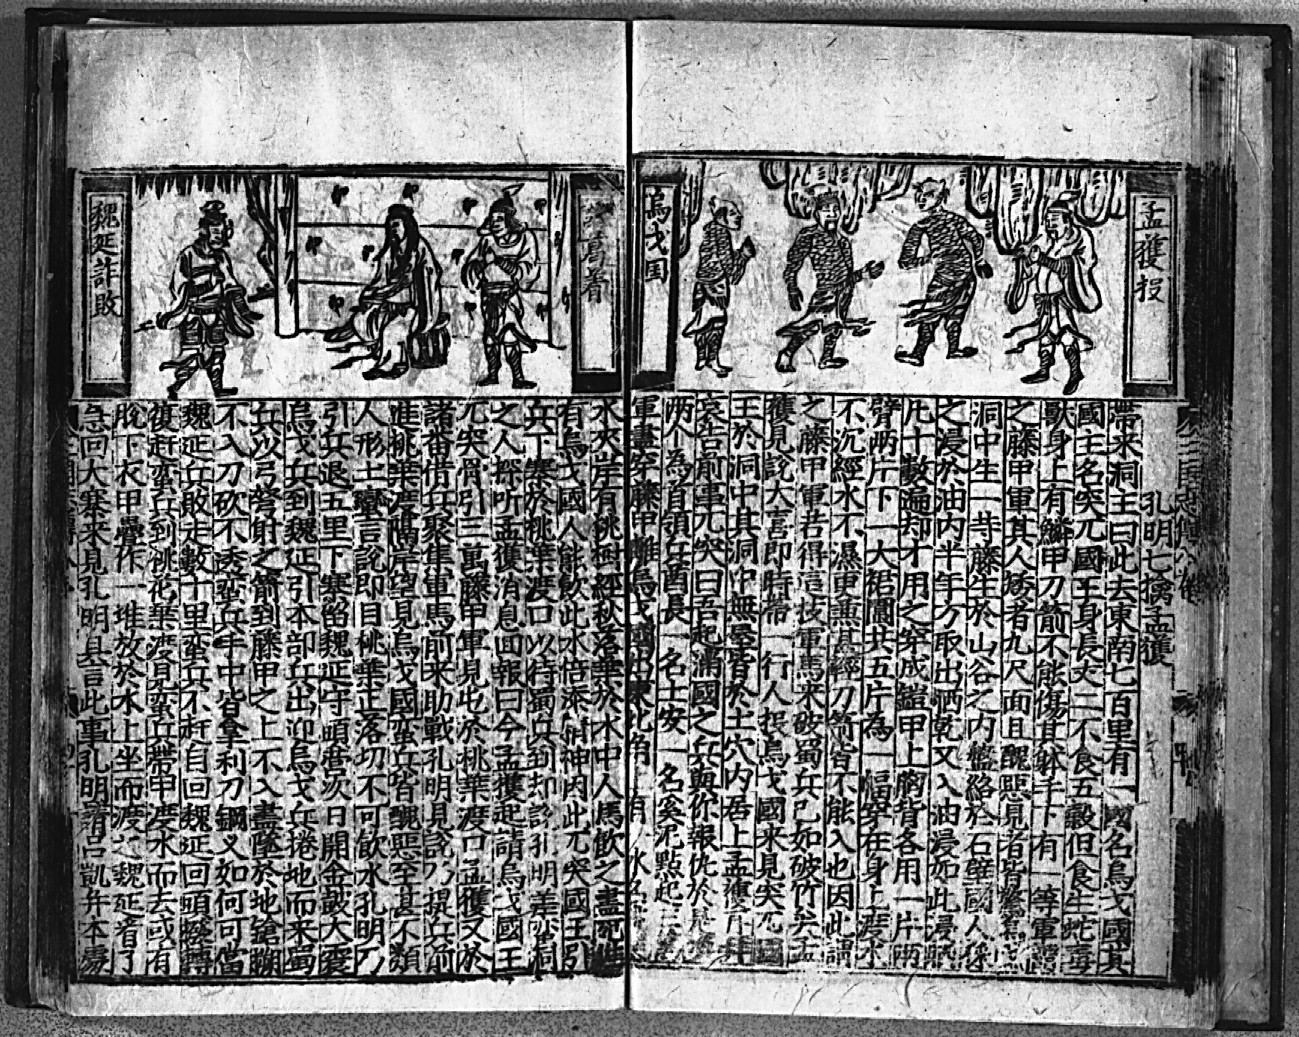 孟獲投
烏戈国
孔明七擒孟獲
帶来洞主曰此去東南七百里有一國名烏戈國其
國王名突兀國王身長丈二不食五穀但食生蛇毒
獸身上有鱗甲刀箭不能傷其躰手下有一等軍
之藤甲軍其人矮者九尺面且醜惡見者皆驚
洞中生一等藤生於山谷之内盤絡於石壁國人採
之浸於油内半年方取出晒乾又入油浸如此浸晒
凡十數遍却才用之穿成鎧甲上胸背各用一片兩
臂兩片下一大裙圍共五片為一幅穿在身上渡水
不沉經水不濕更兼甚輕刀箭皆不能入也因此謂
之藤甲軍若得這技軍馬来破蜀兵已如破竹矣孟
獲見說大喜即時帶一行人投烏戈國来見突兀國
王於洞中其洞中無屋皆於土穴内居上孟獲再拜
哀告前事兀突曰吾起滿國之兵與你報仇於是
两个為首領兵酋長一名土安一名奚泥點起三
軍盡穿藤甲離烏戈國出東北角有水名
諸葛看
魏延詐敗
水夾岸有桃樹經秋落葉於水中人馬飲之盡死惟
有烏戈國人能飲此水倍添精神因此兀突國王引
兵下寨於桃葉渡口以待蜀兵到却說孔明差蛮洞
之人探听孟獲消息回報曰今孟獲起請烏戈國王
兀突骨引三萬藤甲軍見屯於桃葉渡口孟獲又於
諸番借兵聚集軍馬前来助戰孔明見說乃提兵前
進桃葉渡隔岸望見烏戈國蛮兵皆醜惡至甚不類
人形土蠻言說即目桃葉正落切不可飲水孔明乃
引兵退五里下寨留魏延守頭營次日開金鼓大震
烏戈兵到魏延引本部兵出迎烏戈兵捲地而来蜀
兵以弓弩射之箭到藤甲之上不入盡墜於地鎗搠
不入刀砍不透蛮兵手中皆拿利刀鋼叉如何可當
魏延兵敗走數十里蛮兵不赶自回魏延回頭撥轉
復赶蛮兵到桃花葉渡見蛮兵帶甲渡水而去或有
脫下衣甲疊作一堆放於水上坐而渡之魏延看了
急回大寨来見孔明具告此事孔明請呂凱并本處